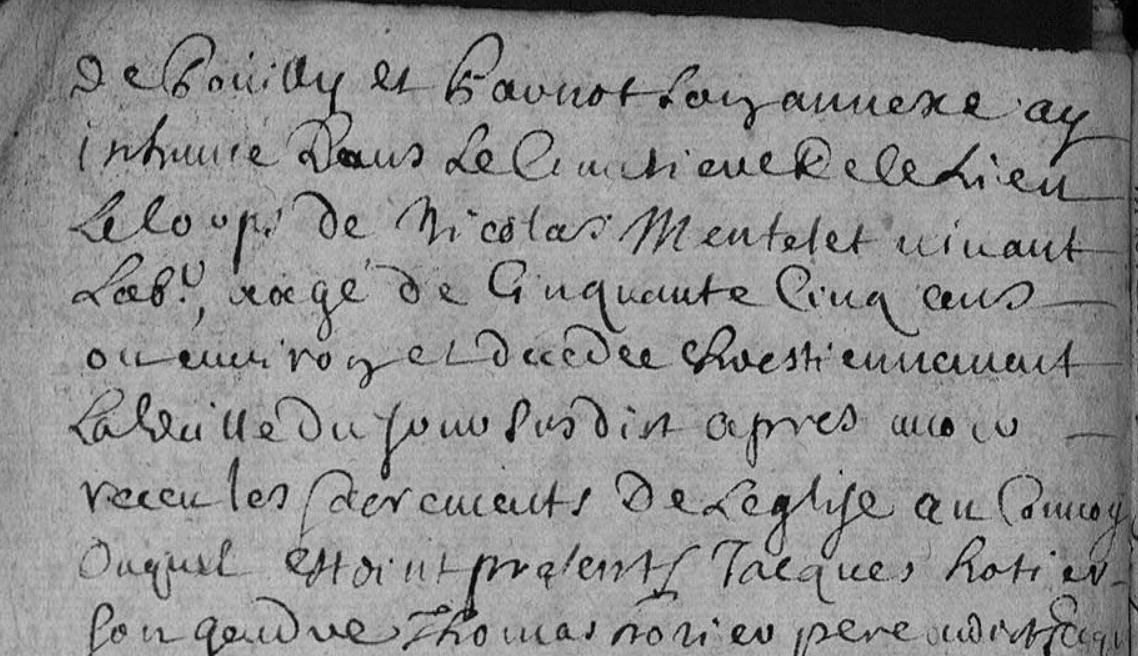 de Pouilly et Bavnot son annexe ay
inhumé dans le Cimetiere de ce lieu
le corps de Nicolas Mentelet vivant
Lab.r, aagé de Cinquante Cinq ans
ou environ et decedee chrestiennement
La veille du jour susdit apres avoir
receu les sacrements de Leglise au Convoy
Duquel estoint presents Jacques
son gendre Thomas pere audict